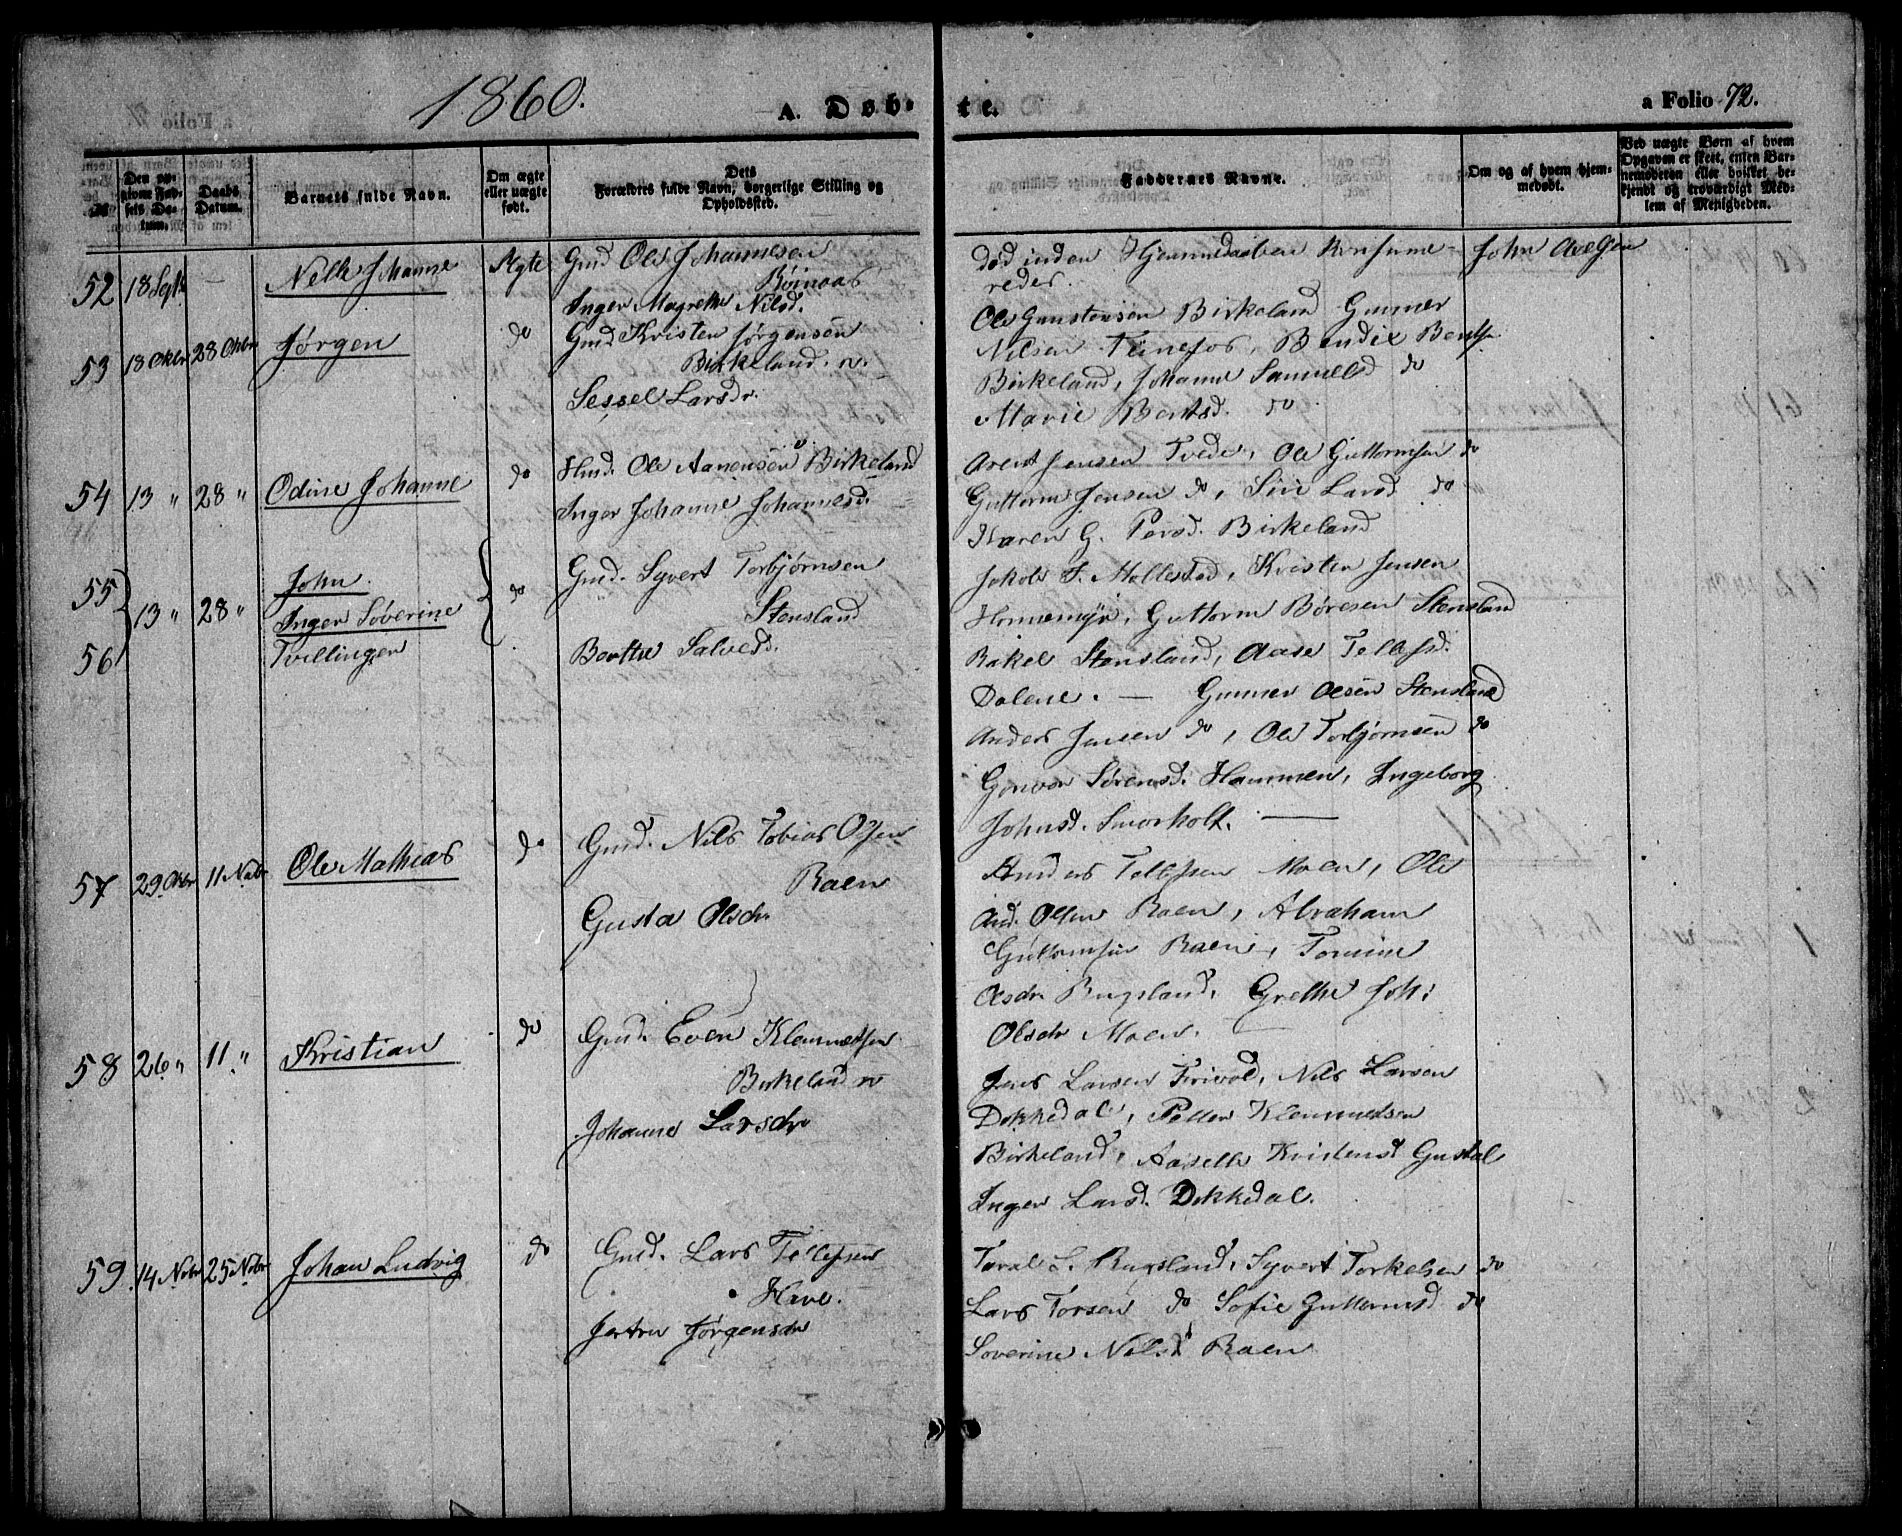 1860.
A. Døb-
te.
a Folio 72.
No
Den opgivne Fødsels Datum.
Daabs Datum.
Barnets fulde Navn.
Om ægte eller uægte født.
Dets Forældres fulde Navn, borgerlige Stilling og Opholdssted.
Faddernes Navne.
Om og af hvem hjemmedøbt.
Ved uægte Børn af hvem Opgaven er skeet, enten Barnemoderen eller hvilket bekjendt og troværdigt Medlem af Menigheden.
52 18 Septb — Nelle Johanne Ægte Gmd Ole Johannesen
Røinaas
Inger Magrethe Nilsd.
død inden Hjemmedaaben
John
53 18 Octbr 28 Octbr Jørgen do Gmd Kristen Jørgensen
Birkeland. n.
Sessel Larsdr.
Ole Gunstensen Birkeland Gunner
Nilsen Tvinefos, Bendix Bentsn
Birkeland, Johanne Samuelsd do
Marie Bentsd. do
54 13 " 28 " Odine Johanne do Hmd. Ole Aanensen Birkeland
Inger Johanne Johannesd.
Arent Jensen Tvede, Ole Guttormsen do
Guttorm Jensen do, Siri Larsd do
Karen G. Persd. Birkeland
55 56 13 " 28 " John.
Inger Søverine
Tvillinger
do Gmd. Syvert Torbjørnsen
Stensland
Berthe Salvesd.
Jakob S. Mollestad, Kristen Jensen
Honnemyr, Guttorm Børesen Stensland
Rakel Stensland, Aase Tellefsd.
Dalene. — Gunner Olsen Stensland
Anders Jensen do, Ole Torbjørnsen do
Gonvor Sørensd. Hammen, Ingeborg
Johnsd. Smorholt. —
57 29 Octbr 11 Nobr Ole Mathias do Gmd. Nils Tobias Olsen
Raen
Gusta Olsdr
Anders Tellefsen Moen, Ole
And. Olsen Raen, Abraham
Guttormsen Raen, Tomine
Olsdr Bugsland, Grethe Joh:
Olsdr Moen.
58 26 " 11 " Kristian do Gmd. Even Klemmetsen
Birkeland n
Johanne Larsdr
Jens Larsen Trivol, Nils Larsen
Dekkedal, Petter Klemmetsen
Birkeland, Aaselle Kristensd Gustal
Inger Larsd. Dekkedal.
59. 14 Nobr 25 Nobr Johan Ludvig do Gmd. Lars Tellefsen
Have.
Jørgensdr
Taral L. Bugsland, Syvert Torkelsen do
Lars Torsen do Sofie Guttormsd do
Soverine Nilsd Raen